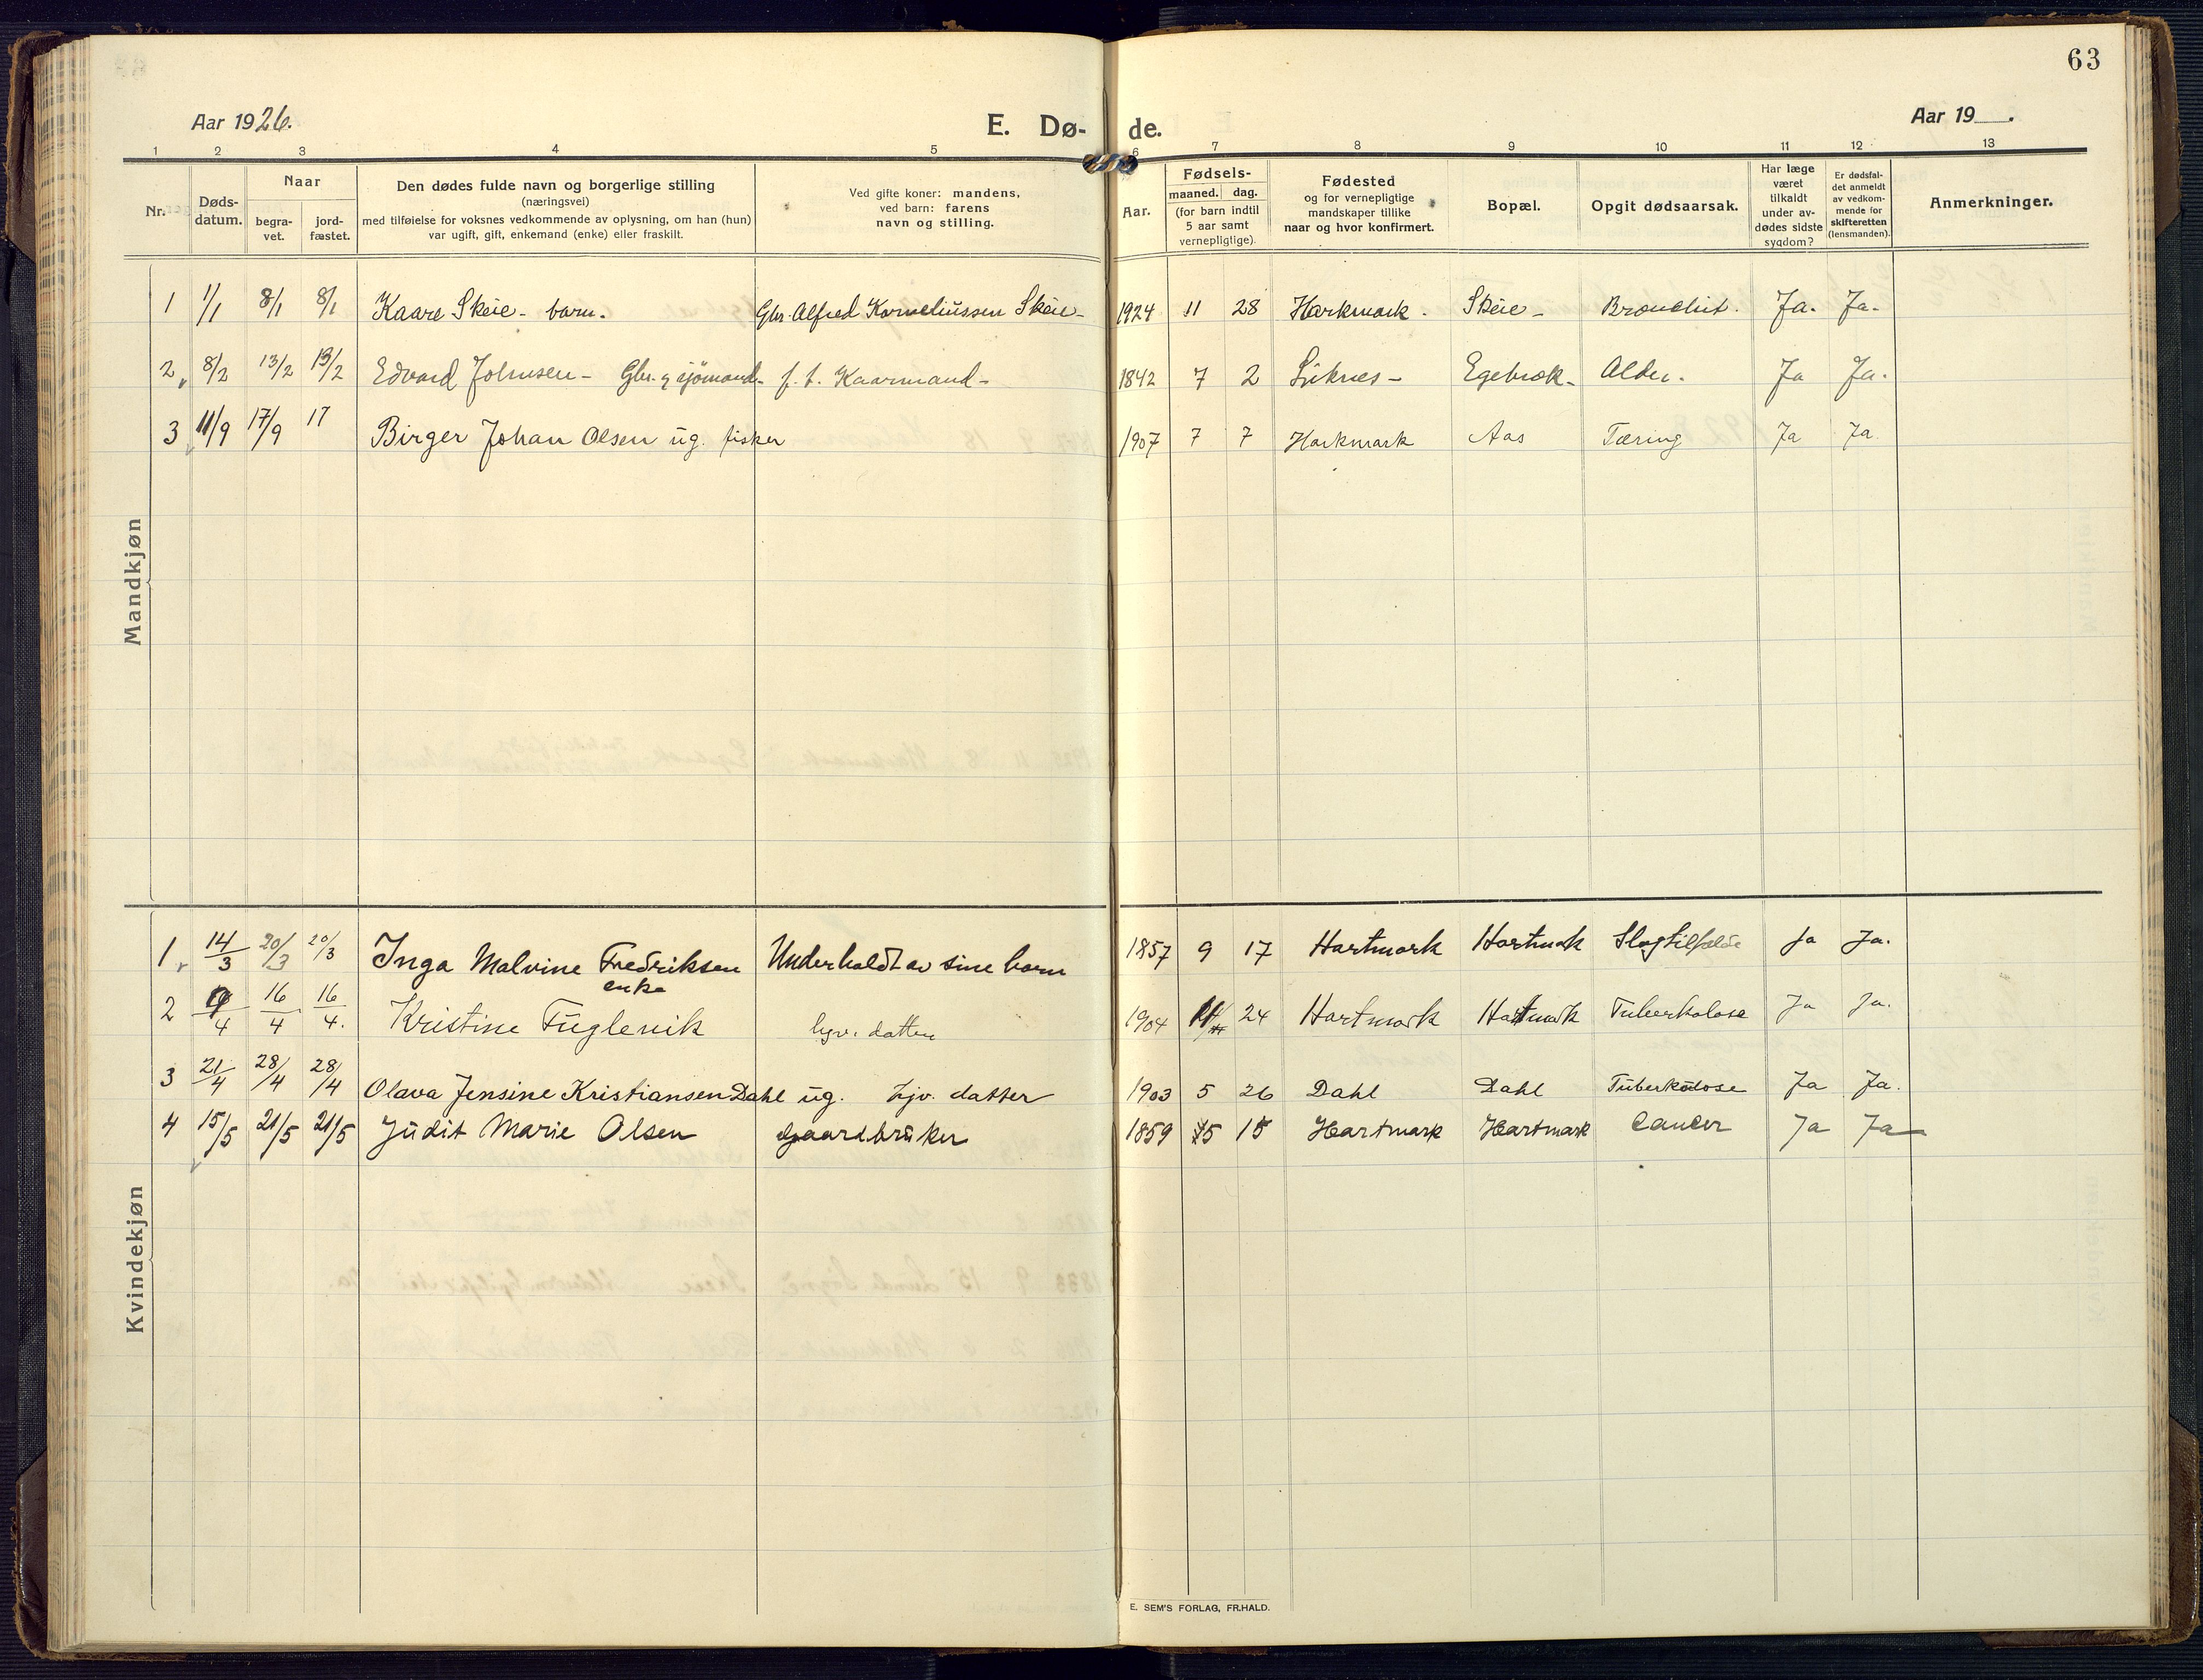 63
Aar 1926.
E. Dø- de.
Aar 19 .
1 2 3 4 5 6 7 8 9 10 11 12 13
Nr.
Døds-
datum.
Naar
begra-
vet.
jord-
fæstet.
Den dødes fulde navn og borgerlige stilling
(næringsvei)
med tilføielse for voksnes vedkommende av oplysning, om han (hun)
var ugift, gift, enkemand (enke) eller fraskilt.
Ved gifte koner: mandens,
ved barn: farens
navn og stilling.
Aar.
Fødsels-
maaned. dag.
(for barn indtil
5 aar samt
vernepligtige).
Fødested
og for vernepligtige
mandskaper tillike
naar og hvor konfirmert.
Bopæl.
Opgit dødsaarsak.
Har læge
været
tilkaldt
under av-
dødes sidste
sygdom?
Er dødsfal-
det anmeldt
av vedkom-
mende for
skifteretten
(lensmanden).
Anmerkninger.
Mandkjøn
1 1/1 8/1 8/1 Kaare Skeie - barn. Gbr. Alfred Korneliussen Skeie - 1924 11 28 Harkmark. Skeie - Bronchit. Ja. Ja.
2 8/2 13/2 13/2 Edvard Johnsen - Gbr. & sjömand - f. t. Kaarmand - 1842 7 2 Egebræk - Alder. Ja Ja.
3 11/9 17/9 17 Birger Johan Olsen ug. fisker 1907 7 7 Harkmark Aas Tæring Ja Ja.
Kvindekjøn
1 14/3 20/3 20/3 Inga Malvine Fredriksen Underholdt av sine barn 1857 9 17 Hartmark Hartmark Slagtilfælde Ja Ja.
enke
2 /4 16/4 16/4. Kristine Fuglevik hjv. datter 1904 24 Hartmark Hartmark Tuberkolose Ja Ja.
3 21/4 28/4 28/4 Olava Jensine Kristiansen Dahl ug. hjv. datter 1903 5 26 Dahl Dahl Tuberkolose Ja Ja.
4 15/5 21/5 21/5 Judit Marie Olsen gaardbruker 1859 5 15 Hartmark Hartmark Cancer Ja Ja
E. SEM'S FORLAG, FR.HALD.